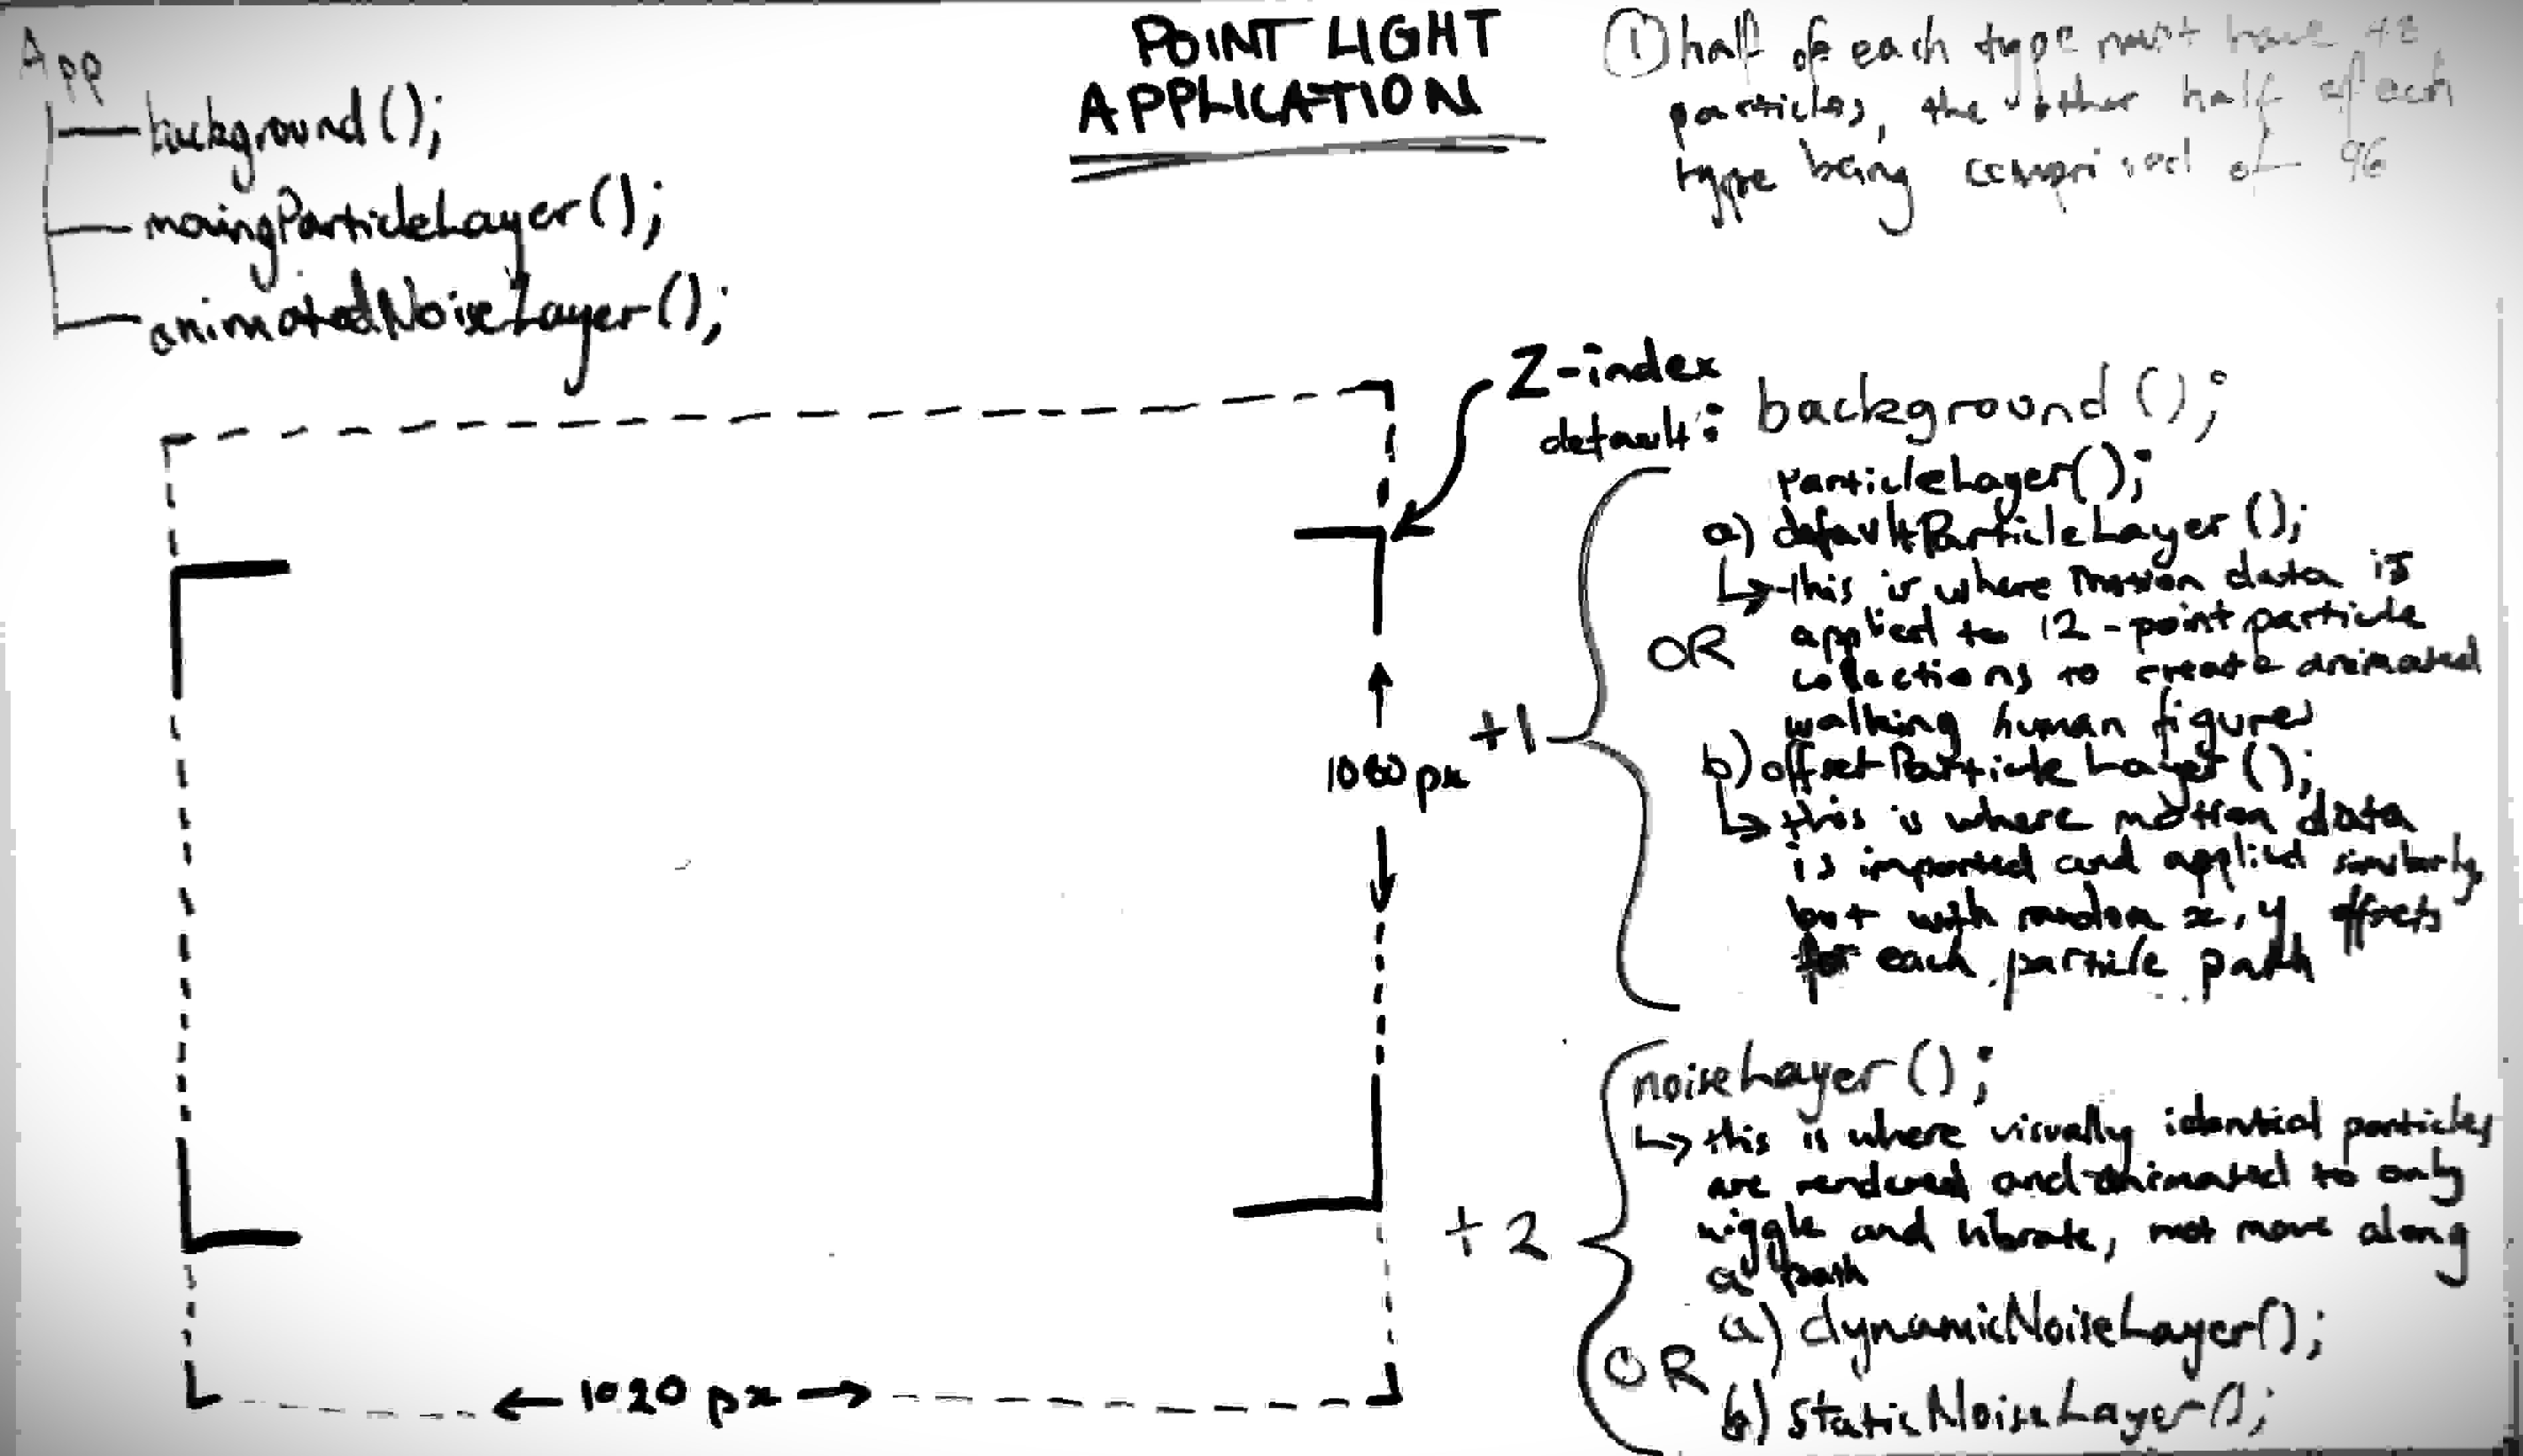 App
background();
movingParticleLayer();
animatedNoiseLayer();
POINT LIGHT
APPLICATION
① half of each type must have 48
particles, the other half of each
type being comprised of 96
Z-index
default:
background();
+1
particleLayer();
a) defaultParticleLayer();
↳ this is where motion data is
applied to 12-point particle
collections to create animated
walking human figures
OR
b) offsetParticleLayer();
↳ this is where motion data
is imported and applied similarly,
but with random x, y offsets
for each particle path
+2
noiseLayer();
↳ this is where visually identical particles
are rendered and animated to only
wiggle and vibrate, not move along
a path
a) dynamicNoiseLayer();
OR
b) staticNoiseLayer();
px
← 1020 px →